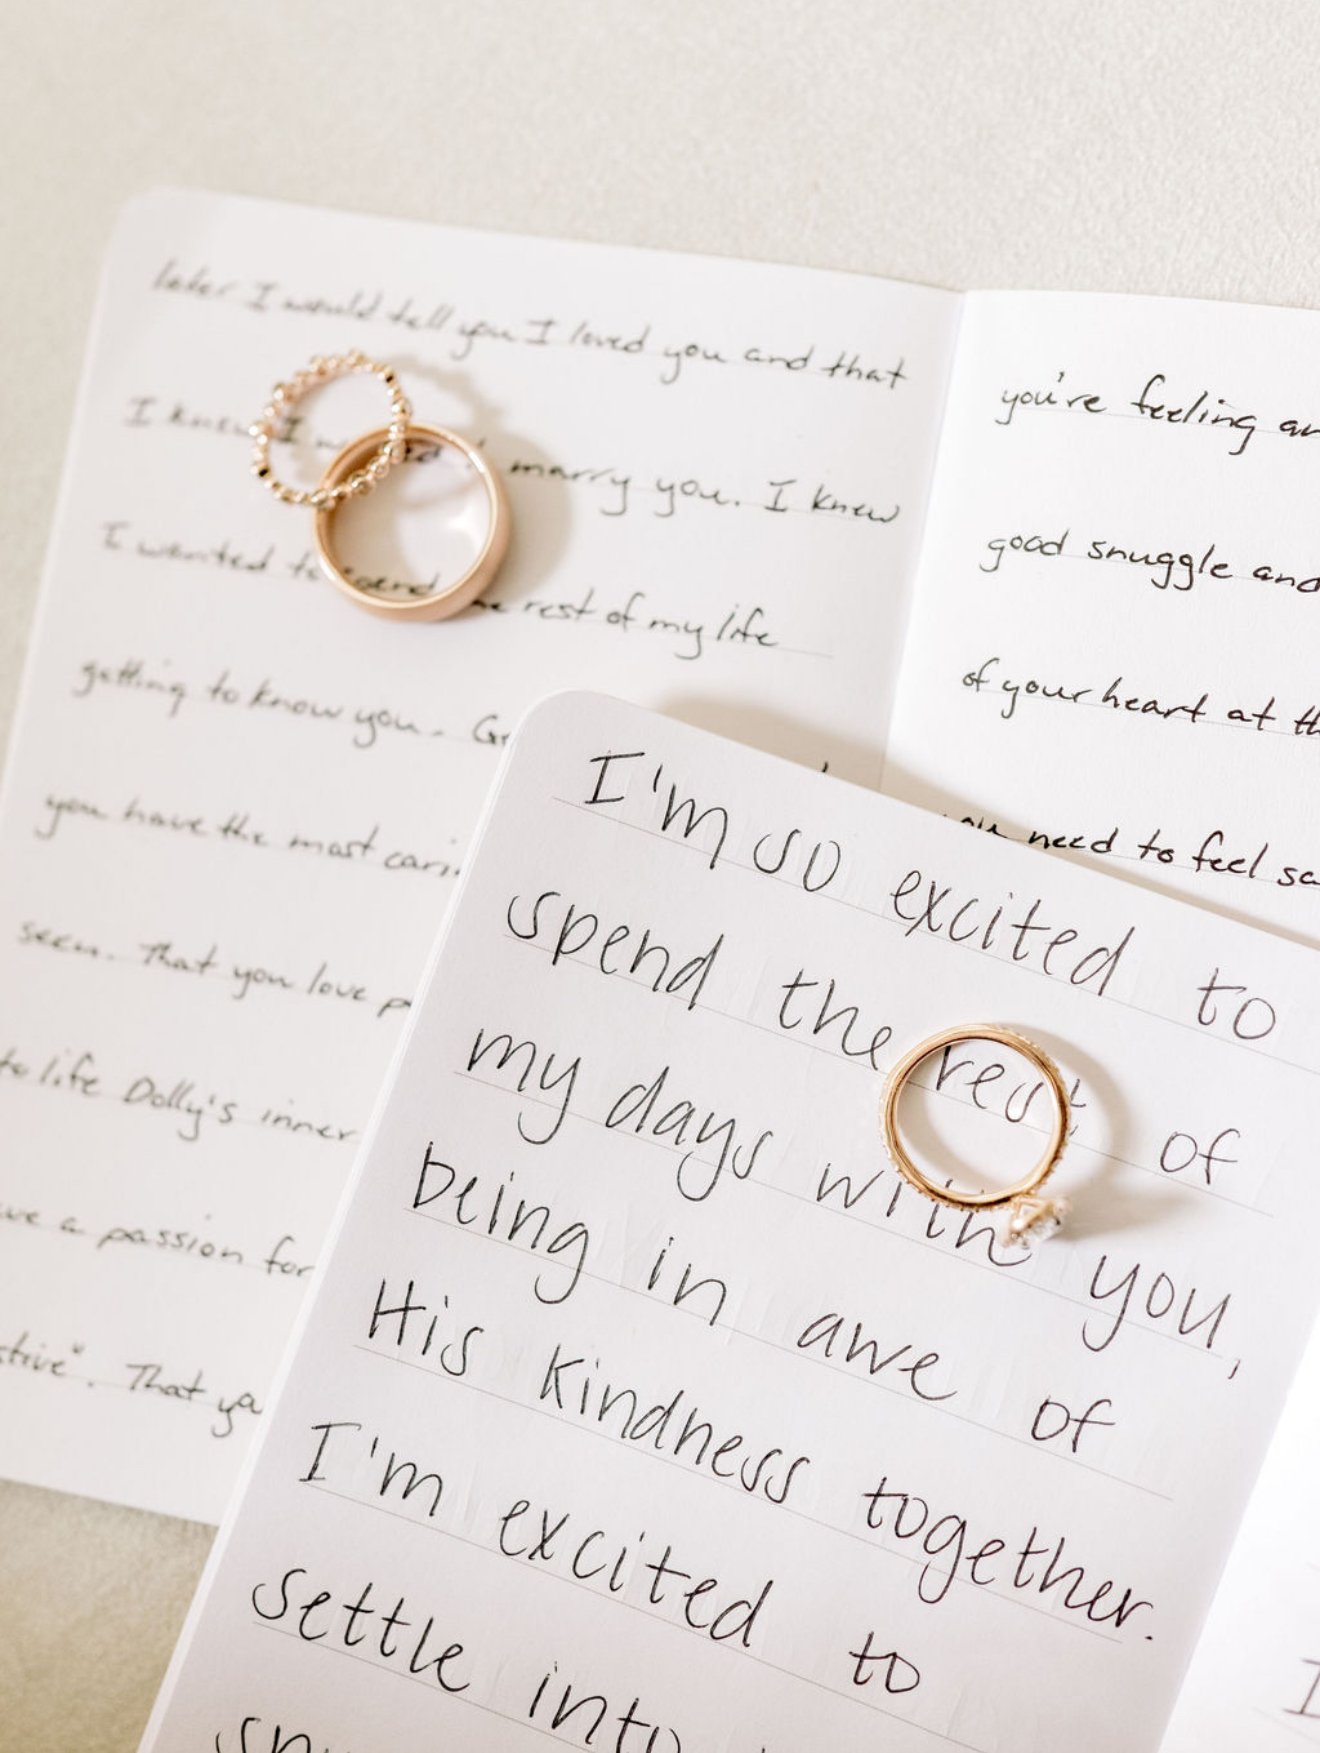 later I would tell you I loved you and that
I knew I marry you. I knew
I wanted to spend the rest of my life
getting to know you.
you have the most
seen. That you love
to life Dolly's inner
a passion for
". That
you're feeling
good snuggle and
of your heart at
need to feel
I'm so excited to
spend the rest of
my days with you,
being in awe of
His kindness together.
I'm excited to
settle into
I